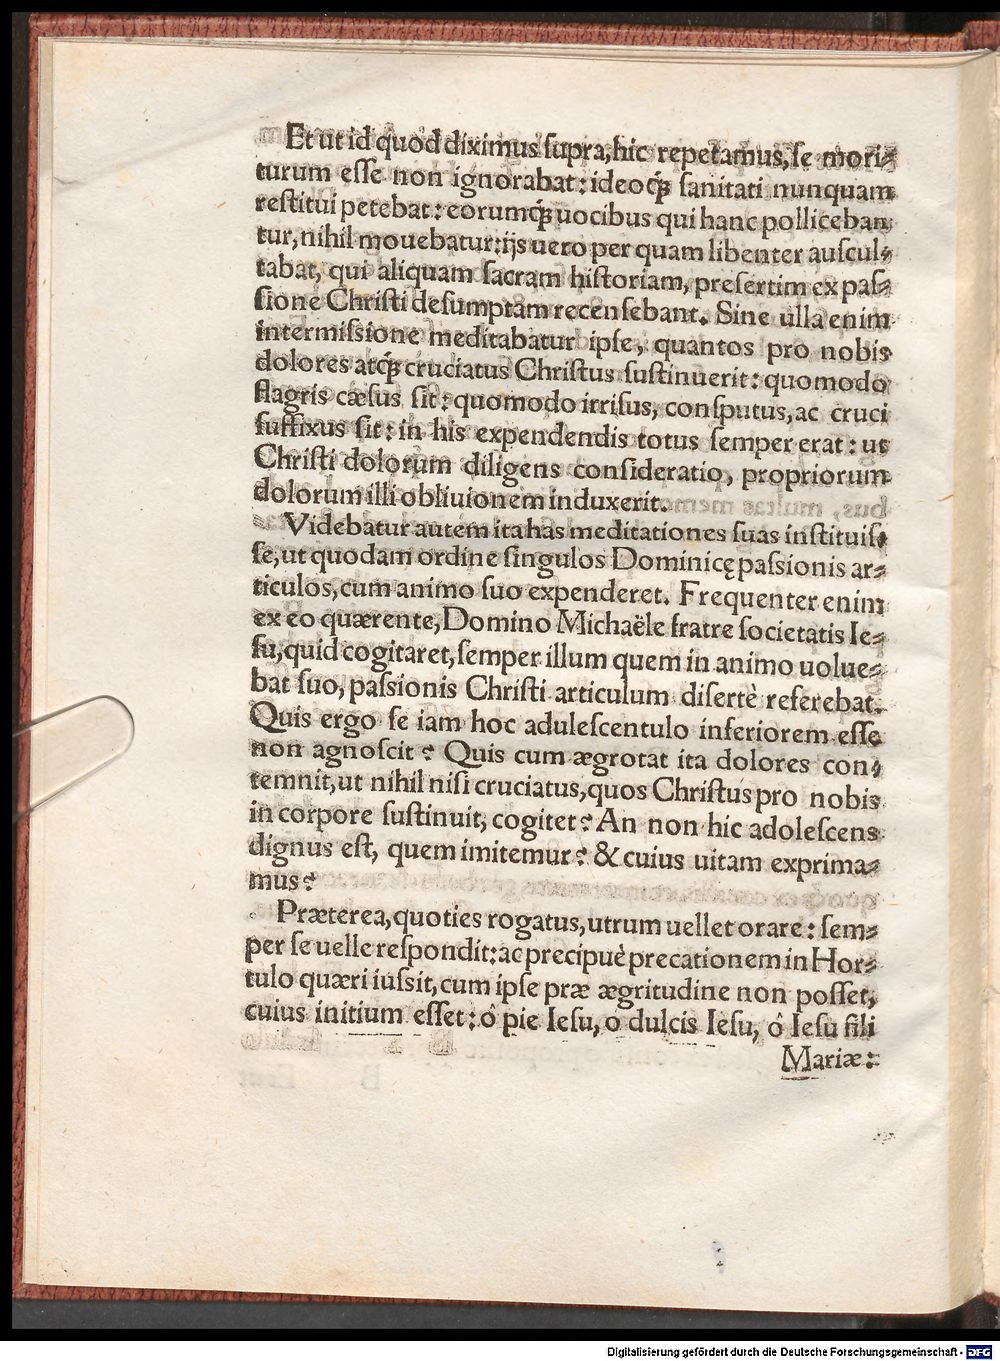 Et ut id quod diximus supra, hic repetamus, se mori-
turum esse non ignorabat: ideoq́; sanitati nunquam
restitui petebat: eorumq́; uocibus qui hanc polliceban
tur, nihil mouebatur: ijs uero per quam libenter auscul-
tabat, qui aliquam sacram historiam, presertim ex pas-
sione Christi desumptam recensebant. Sine ulla enim
intermissione meditabatur ipse, quantos pro nobis
dolores atq́; cruciatus Christus sustinuerit: quomodo
flagris cæsus sit: quomodo irrisus, consputus, ac cruci
suffixus sit: in his expendendis totus semper erat: ut
Christi dolorum diligens consideratio, propriorum
dolorum illi obliuionem induxerit.
Videbatur autem ita has meditationes suas instituis-
se, ut quodam ordine singulos Dominicę passionis ar-
ticulos, cum animo suo expenderet. Frequenter enim
ex eo quærente, Domino Michaële fratre societatis Ie-
su, quid cogitaret, semper illum quem in animo uolue-
bat suo, passionis Christi articulum disertè referebat.
Quis ergo se iam hoc adulescentulo inferiorem esse
non agnoscit? Quis cum ægrotat ita dolores con-
temnit, ut nihil nisi cruciatus, quos Christus pro nobis
in corpore sustinuit, cogitet? An non hic adolescens
dignus est, quem imitemur? & cuius uitam exprima-
mus?
Præterea, quoties rogatus, utrum uellet orare: sem-
per se uelle respondit: ac precipuè precationem in Hor-
tulo quæri iussit, cum ipse præ ægritudine non posset,
cuius initium esset: ô pie Iesu, o dulcis Iesu, ô Iesu fili
Mariæ:
Digitalisierung gefördert durch die Deutsche Forschungsgemeinschaft - DFG